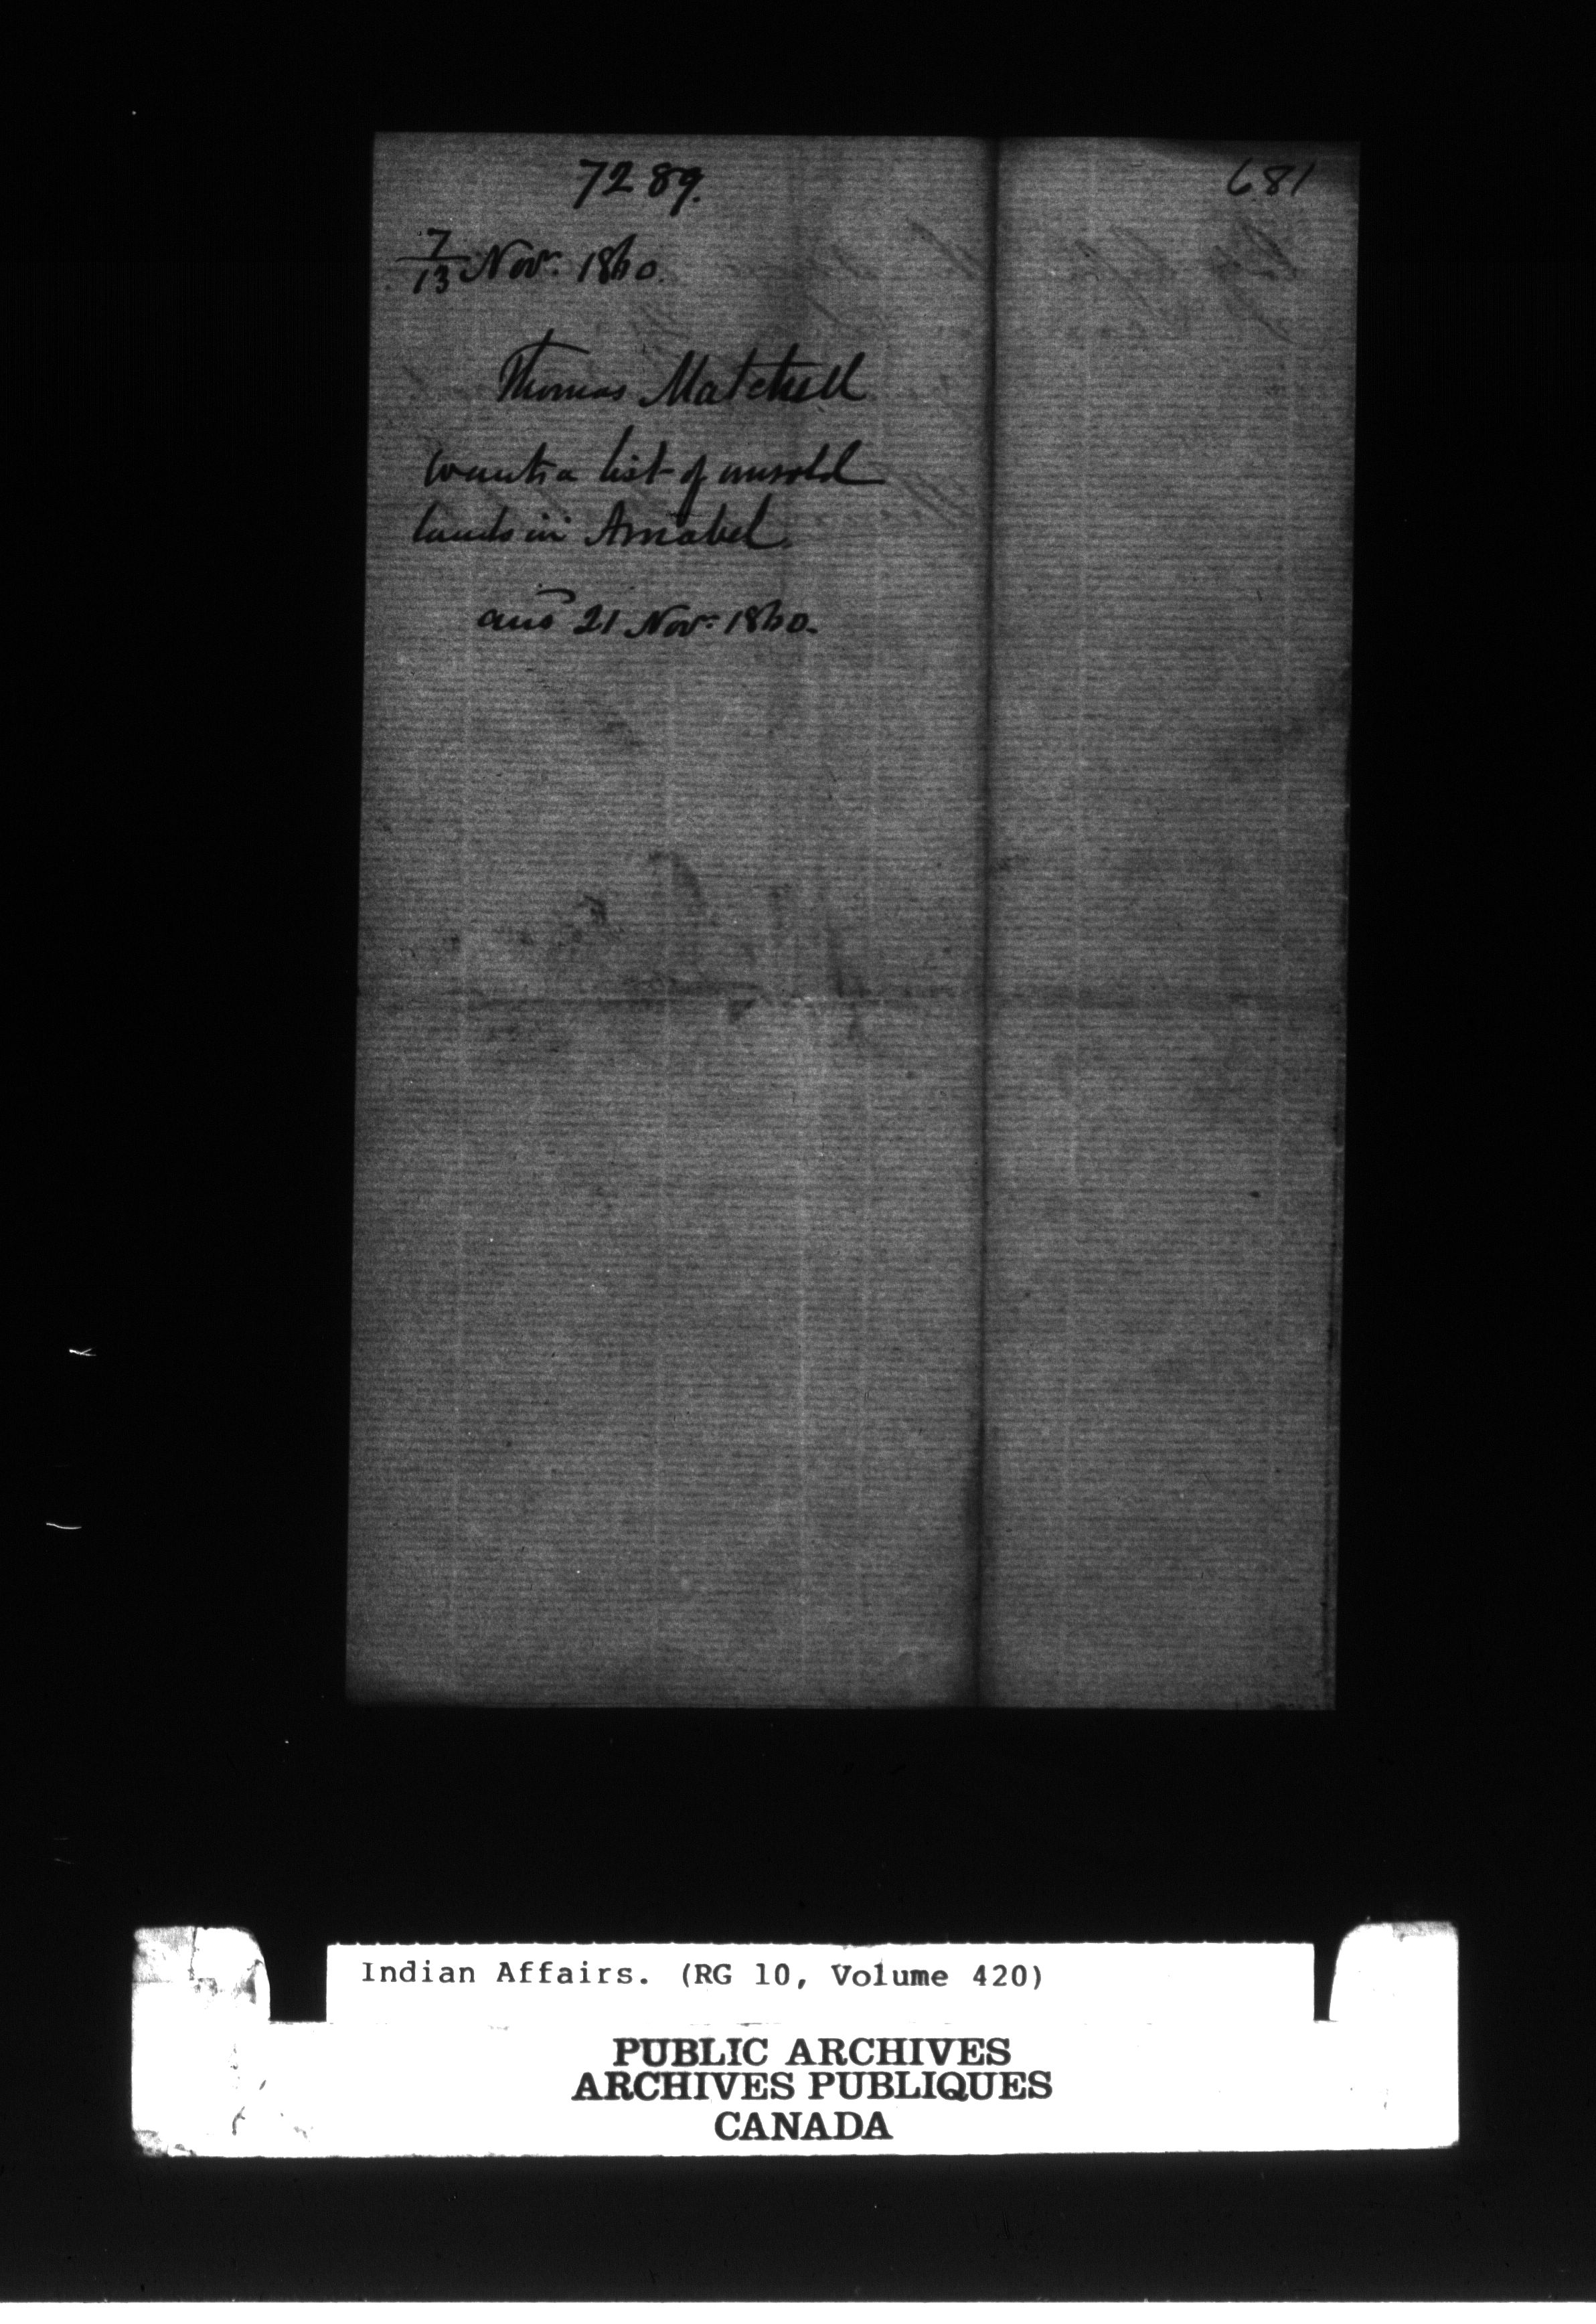 7289.
681
7/13 Nov. 1860.
Thomas Matchell
wants a list of unsold
lands in Amabel.
ans 21 Nov. 1860.
Indian Affairs. (RG 10, Volume 420)
PUBLIC ARCHIVES
ARCHIVES PUBLIQUES
CANADA